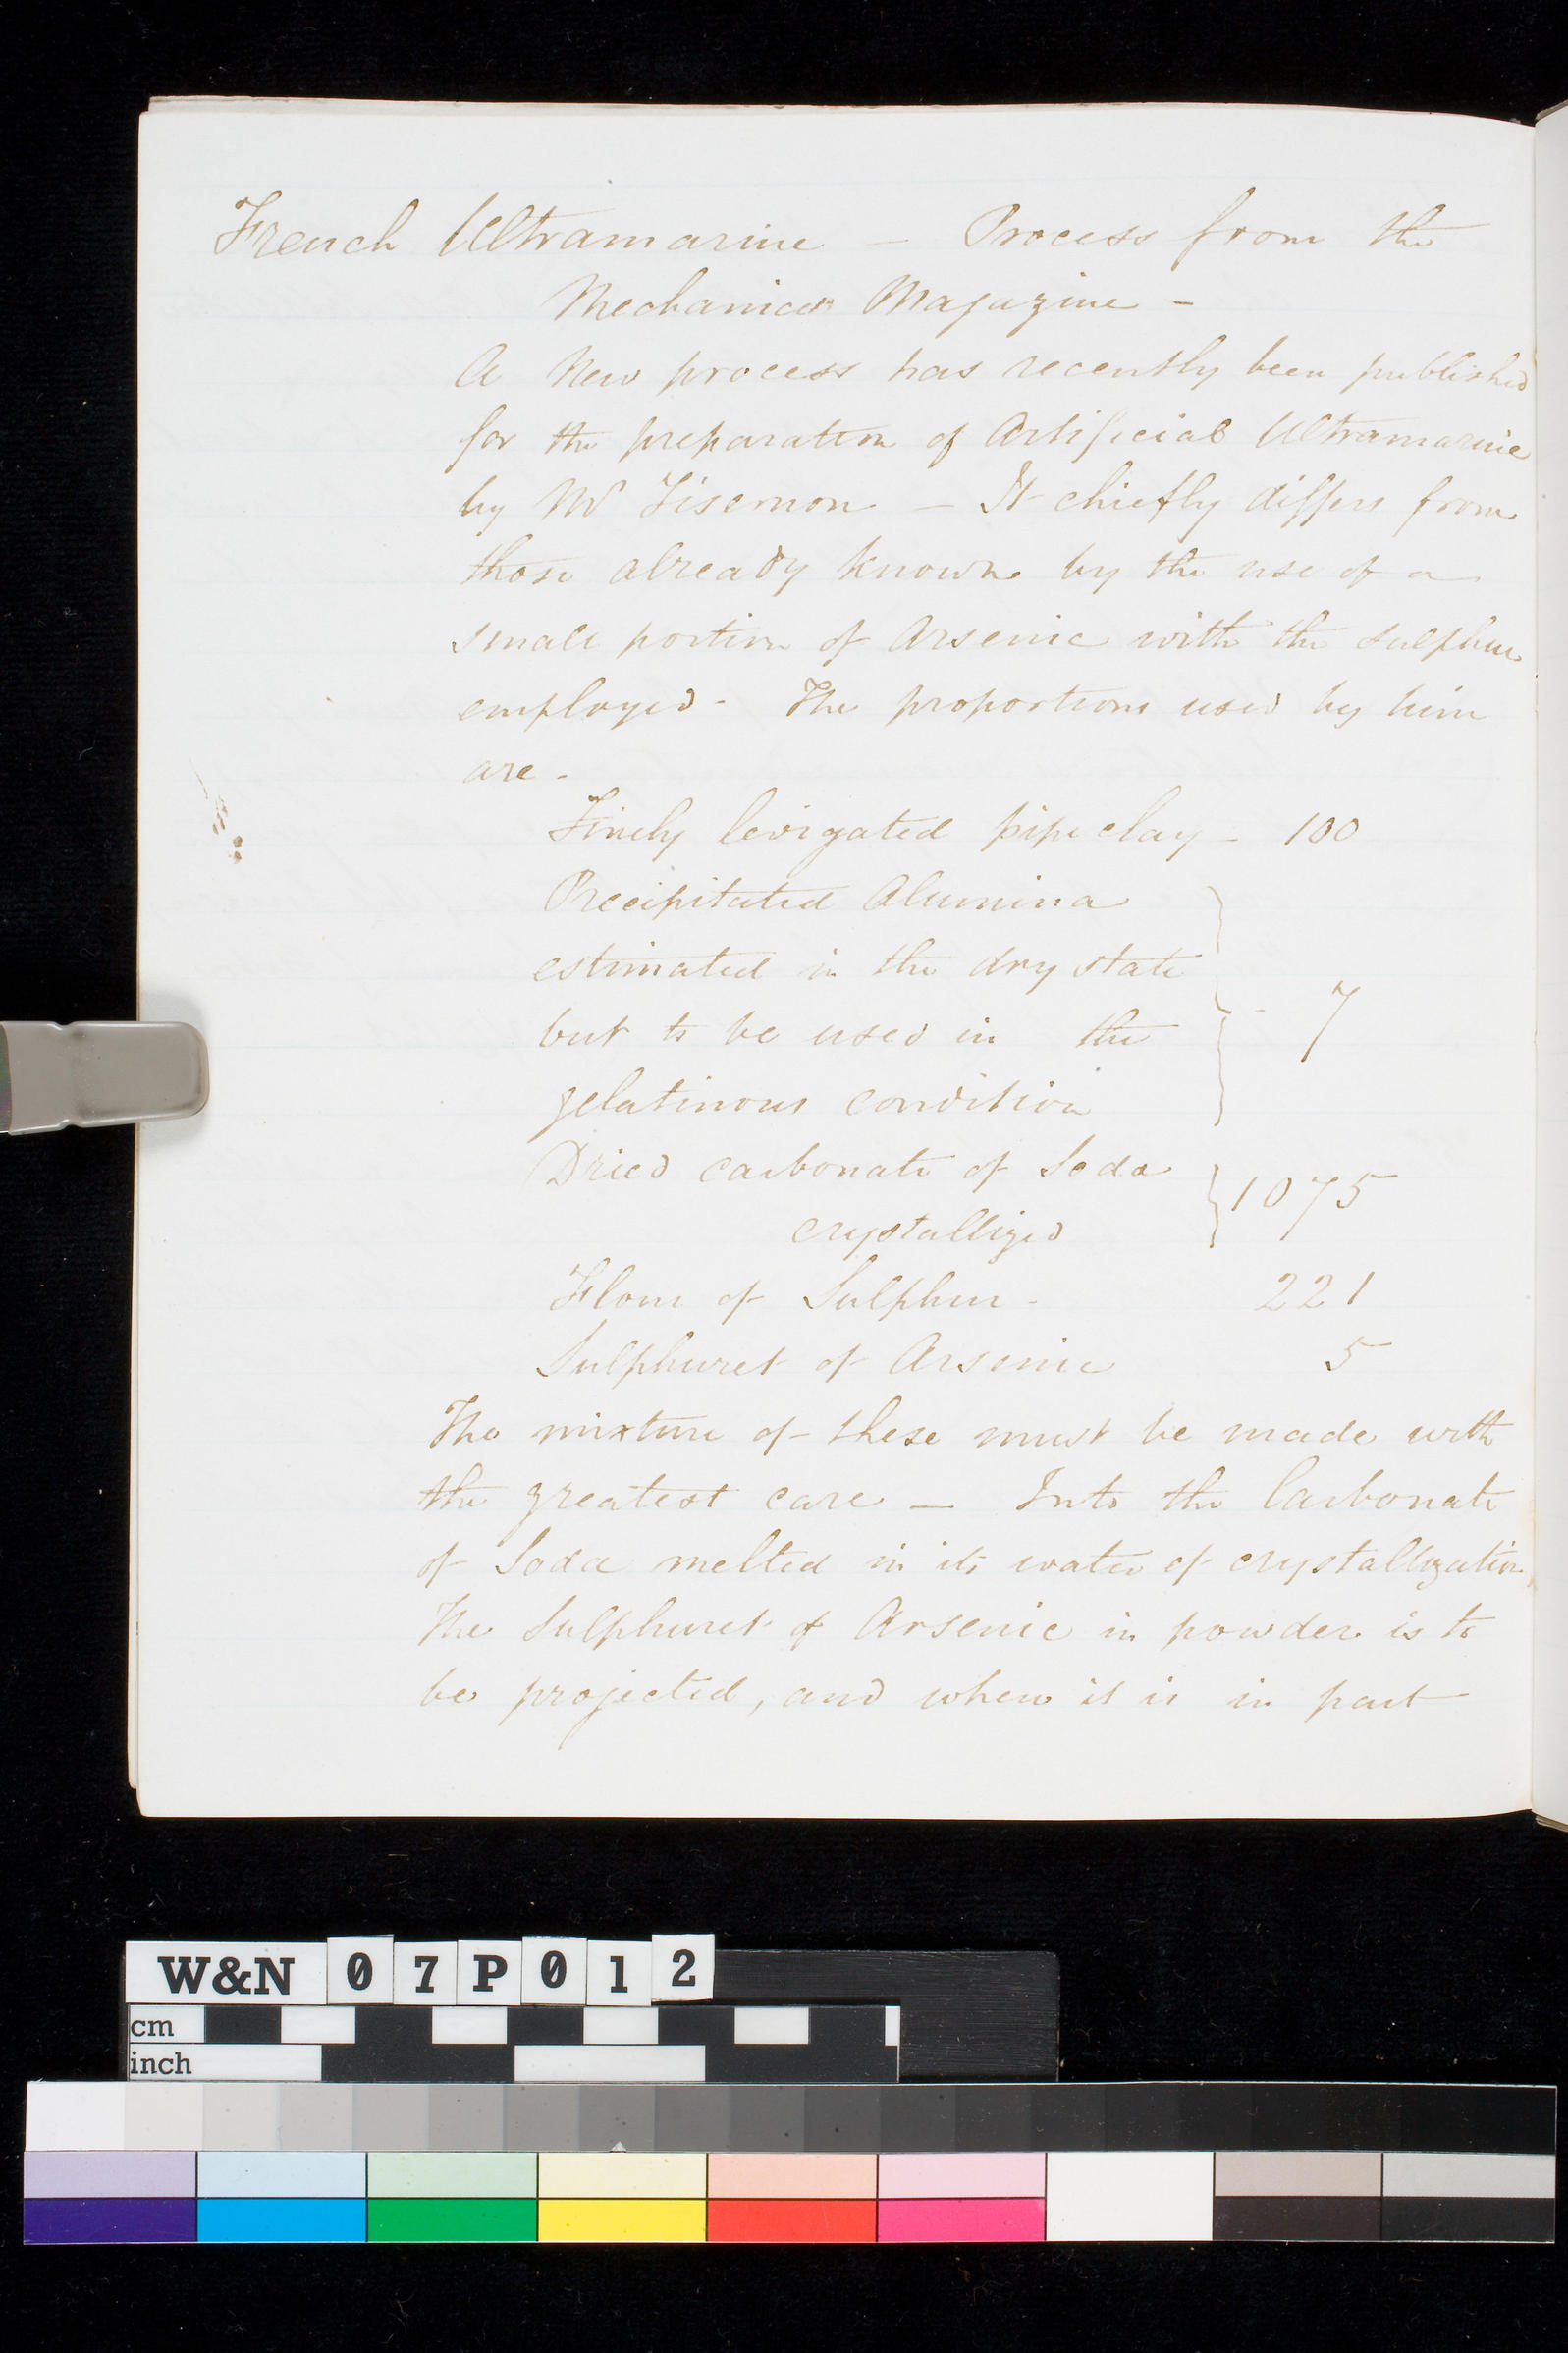 French Ultramarine — Process from the
Mechanics Magazine —
A New process has recently been published
for the preparation of Artificial Ultramarine
by Mr Tisemon — It chiefly differs from
those already known by the use of a
small portion of Arsenic with the sulphur
employed - The proportions used by him
are -
Finely levigated pipe clay - 100
Precipitated Alumina
estimated in the dry state
but to be used in the
gelatinous condition } - 7
Dried carbonate of Soda
crystallized } 1075
Flour of Sulphur - 221
Sulphuret of Arsenic 5
The mixture of these must be made with
the greatest care — Into the Carbonate
of Soda melted in its water of crystallization
The Sulphuret of Arsenic in powder is to
be projected, and when it is in part
W&N 07P012
cm
inch